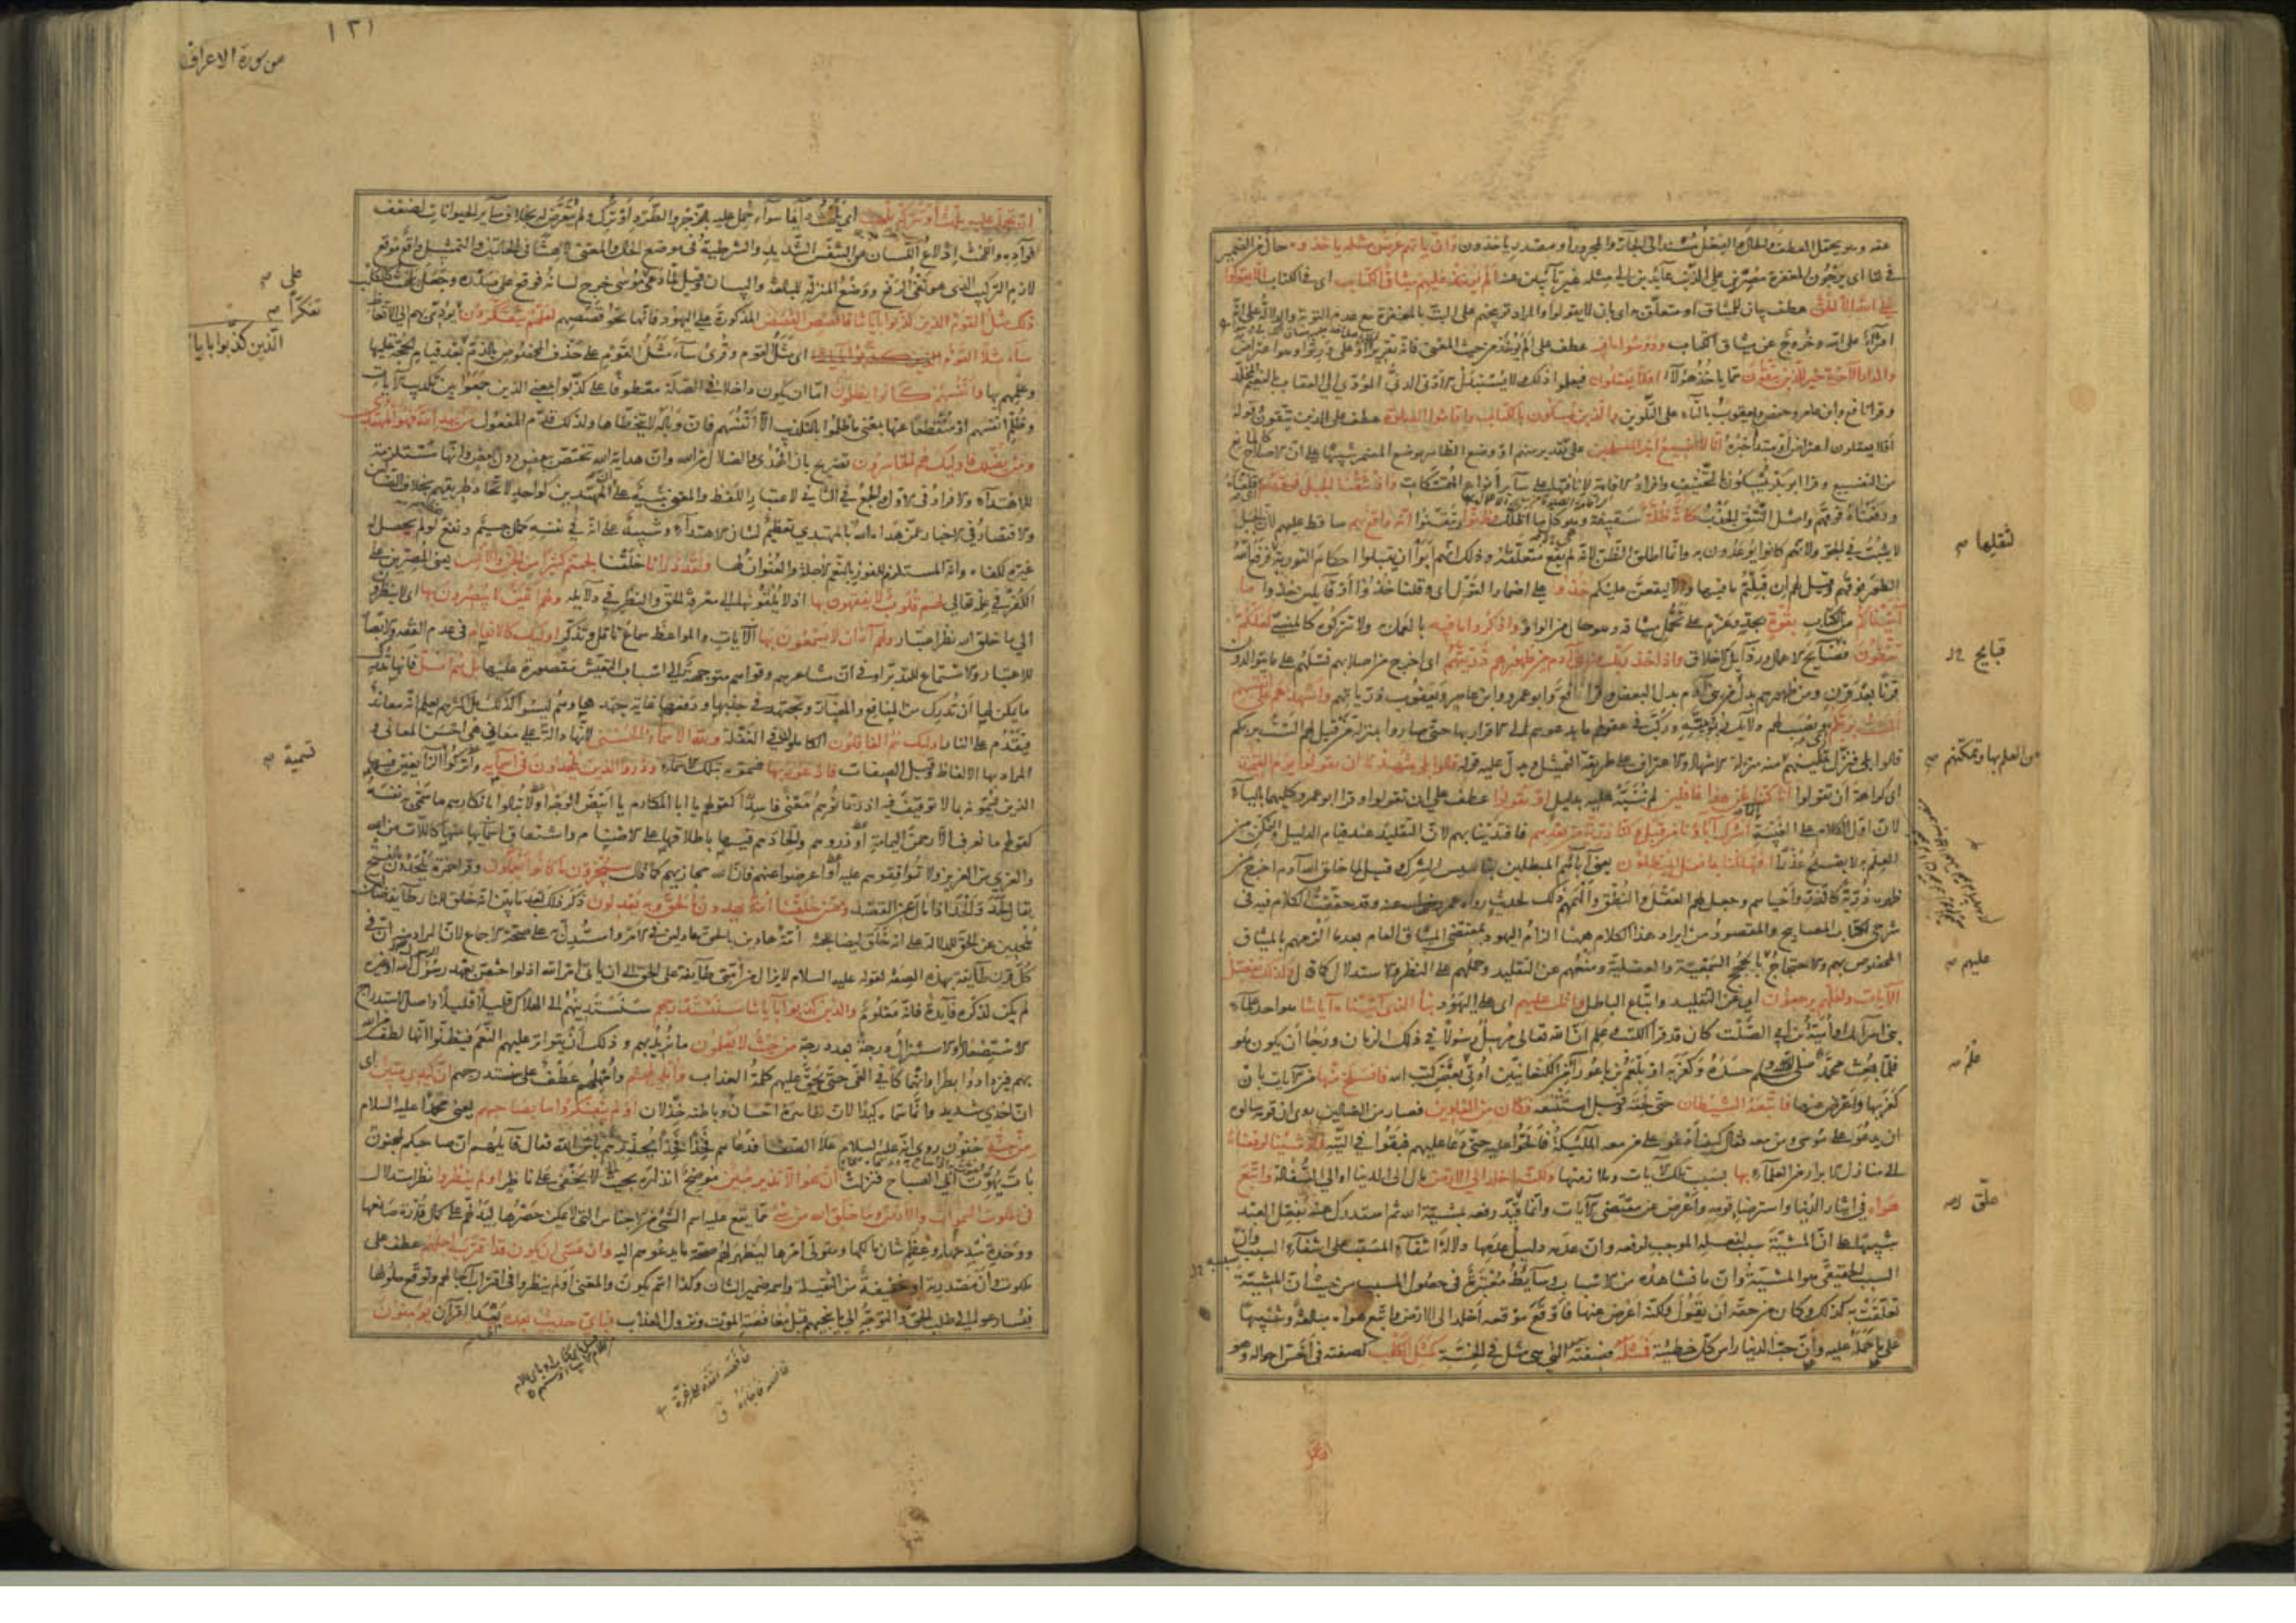 عنه وهو يحتمل العطف والحال والفعل مسند الى الجار والمجرور او مصدر ياخذون وان ياتهم عرض مثله ياخذوه حال من الضمير
في لنا اى يرجون المغفرة مصرين على الذنب عائدين الى مثله غير تائبين عنه الم يؤخذ عليهم ميثاق الكتاب اى في الكتاب ان لا يقولوا
على الله الا الحق عطف بيان للميثاق او متعلق به اى بان لا يقولوا والمراد توبيخهم على البت بالمغفرة مع عدم التوبة والدلالة على انه
افتراء على الله وخروج عن ميثاق الكتاب ودرسوا ما فيه عطف على الم يؤخذ من حيث المعنى فانه تقرير او على ورثوا وهو اعتراض
والدار الآخرة خير للذين يتقون مما ياخذ هؤلاء افلا يعقلون فيعلموا ذلك ولا يستبدلوا الادنى الدنى المؤدى الى العقاب بالنعيم المخلد
وقرا نافع وابن عامر وحفص ويعقوب بالتاء على التلوين والذين يمسكون بالكتاب واقاموا الصلوة عطف على الذين يتقون وقوله
افلا يعقلون اعتراض او مبتدأ خبره انا لا نضيع اجر المصلحين على تقدير منهم او وضع الظاهر موضع المضمر تنبيها على ان الاصلاح كالمانع
من التضييع وقرا ابو بكر يمسكون بالتخفيف وافراد الاقامة لانافتها على سائر انواع المتمسكات واذ نتقنا الجبل فوقهم اى قلعناه
ورفعناه فوقهم واصل النتق الجذب كانه ظلة سقيفة وهو كل ما اظلك وظنوا وتيقنوا انه واقع بهم ساقط عليهم لان الجبل
لا يثبت في الجو ولانهم كانوا يوعدون به وانما اطلق الظن لانه لم يقع متعلقه وذلك انهم ابوا ان يقبلوا احكام التورية فرفع الله
الطور فوقهم وقيل لهم ان قبلتم ما فيها والا ليقعن عليكم خذوا على اضمار القول اى وقلنا خذوا او قائلين خذوا ما
آتيناكم من الكتاب بقوة بجد وعزم على تحمل مشاقه وهو حال من الواو واذكروا ما فيه بالعمل به ولا تتركوه كالمنسي لعلكم
تتقون قبايح الاعمال ورذايل الاخلاق واذ اخذ ربك من بني آدم من ظهورهم ذريتهم اى اخرج من اصلابهم نسلهم على ما يتوالدون
قرنا بعد قرن ومن ظهورهم بدل من بني آدم بدل البعض وقرا نافع وابو عمرو وابن عامر ويعقوب ذرياتهم واشهدهم على انفسهم
الست بربكم اى ونصب لهم دلايل ربوبيته وركب في عقولهم ما يدعوهم الى الاقرار بها حتى صاروا بمنزلة من قيل لهم الست بربكم
قالوا بلى فنزل تمكينهم منه منزلة الاشهاد والاعتراف على طريقة التمثيل ويدل عليه قوله قالوا بلى شهدنا ان تقولوا يوم القيمة
اى كراهة ان تقولوا انا كنا عن هذا غافلين لم ننبه عليه بدليل او تقولوا عطف على ان تقولوا وقرا ابو عمرو كليهما بالياء
لان اول الكلام على الغيبة انما اشرك آباؤنا من قبل وكنا ذرية من بعدهم فاقتدينا بهم لان التقليد عند قيام الدليل والتمكن من
العلم به لا يصلح عذرا افتهلكنا بما فعل المبطلون يعني آباءهم المبطلين بتاسيس الشرك قيل لما خلق الله آدم اخرج من
ظهره ذرية كالذر واحياهم وجعل لهم العقل والنطق والهمهم ذلك لحديث رواه عمر رضي الله عنه وقد حققت الكلام فيه في
شرحي لكتاب المصابيح والمقصود من ايراد هذا الكلام ههنا الزام اليهود بمقتضى الميثاق العام بعد ما الزمهم بالميثاق
المخصوص بهم والاحتجاج بالحجج السمعية والعقلية ومنعهم عن التقليد وحملهم على النظر والاستدلال كما قال وكذلك نفصل
الآيات ولعلهم يرجعون اى عن التقليد واتباع الباطل واتل عليهم اى على اليهود نبأ الذي آتيناه آياتنا هو احد علماء
بني اسرائيل او امية بن ابي الصلت كان قد قرا الكتب وعلم ان الله تعالى مرسل رسولا في ذلك الزمان ورجا ان يكون هو
فلما بعث محمد صلى الله عليه وسلم حسده وكفر به او بلعم بن باعورا من الكنعانيين اوتي بعض كتب الله فانسلخ منها من الآيات بان
كفر بها واعرض عنها فاتبعه الشيطان حتى لحقه وقيل استتبعه فكان من الغاوين فصار من الضالين روى ان قومه سالوه
ان يدعو على موسى ومن معه فقال كيف ادعو على من معه الملئكة فالحوا عليه حتى دعا عليهم فبقوا في التيه ولو شئنا لرفعناه
الى منازل الابرار من العلماء بها بسبب تلك الآيات وملازمتها ولكنه اخلد الى الارض مال الى الدنيا او الى السفالة واتبع
هواه في ايثار الدنيا واسترضاء قومه واعرض عن مقتضى الآيات وانما قيد رفعه بمشيئة الله ثم استدرك عنه بفعل العبد
تنبيها على ان المشيئة سبب لفعله الموجب لرفعه وان عدمه دليل عدمها دلالة انتفاء المسبب على انتفاء السبب وان
السبب الحقيقي هو المشيئة وان ما نشاهده من الاسباب وسايط معتبرة في حصول المسبب من حيث ان المشيئة
تعلقت به كذلك وكان من حقه ان يقول ولكنه اعرض عنها فاوقع موقعه اخلد الى الارض واتبع هواه مبالغة وتنبيها
على ما حمله عليه وان حب الدنيا راس كل خطيئة فمثله فصفته التي هي مثل في الخسة كمثل الكلب كصفته في اخس احواله وهو
لثقلها
قبايح
من العلم بها وتمكنهم
عليهم
علق
من سورة الاعراف
١٣١
ان تحمل عليه يلهث او تتركه يلهث اى يلهث دائما سواء حمل عليه بالزجر والطرد او ترك ولم يتعرض له بخلاف ساير الحيوانات لضعف
فؤاده واللهث ادلاع اللسان من التنفس الشديد والشرطية في موضع الحال والمعنى لاهثا في الحالتين والتمثيل واقع موقع
لازم التركيب الذي هو نفي الرفع ووضع المنزلة للمبالغة والبيان وقيل لما دعا على موسى خرج لسانه فوقع على صدره وجعل يلهث كالكلب
ذلك مثل القوم الذين كذبوا بآياتنا فاقصص القصص المذكورة على اليهود فانها نحو قصصهم لعلهم يتفكرون تفكرا يؤدي بهم الى الاتعاظ
ساء مثلا القوم اى مثل القوم وقرئ ساء مثل القوم على حذف المخصوص بالذم بعد قيام الحجة عليها
وعلمهم بها وانفسهم كانوا يظلمون اما ان يكون داخلا في الصلة معطوفا على كذبوا بمعنى الذين جمعوا بين تكذيب الآيات
وظلم انفسهم او منقطعا عنها بمعنى وما ظلموا بالتكذيب الا انفسهم فان وباله لا يتخطاها ولذلك قدم المفعول من يهد الله فهو المهتدي
ومن يضلل فاولئك هم الخاسرون تصريح بان الهدى والضلال من الله وان هداية الله تختص ببعض دون بعض وانها مستلزمة
للاهتداء والافراد في الاول والجمع في الثاني لاعتبار اللفظ والمعنى تنبيه على ان المهتدين كواحد لاتحاد طريقهم بخلاف الضالين
والاقتصار في الاخبار عمن هداه الله بالمهتدي تعظيم لشان الاهتداء وتنبيه على انه في نفسه كمال جسيم ونفع لو لم يحصل له
غيره لكفاه وانه المستلزم للفوز بالنعم الآجلة والعنوان لها ولقد ذرأنا خلقنا لجهنم كثيرا من الجن والانس يعني المصرين على
الكفر في علمه تعالى لهم قلوب لا يفقهون بها اذ لا يلقونها الى معرفة الحق والنظر في دلايله ولهم اعين لا يبصرون بها اى لا ينظرون
الى ما خلق الله نظر اعتبار ولهم آذان لا يسمعون بها الآيات والمواعظ سماع تامل وتذكر اولئك كالانعام في عدم الفقه والابصار
للاعتبار والاستماع للتدبر او في ان مشاعرهم وقواهم متوجهة الى اسباب التعيش مقصورة عليها بل هم اضل فانها تدرك
ما يمكن لها ان تدرك من المنافع والمضار وتجتهد في جلبها ودفعها غاية جهدها وهم ليسوا كذلك بل اكثرهم يعلم انه معاند
فيقدم على النار اولئك هم الغافلون الكاملون في الغفلة ولله الاسماء الحسنى لانها دالة على معان هي احسن المعاني و
المراد بها الالفاظ وقيل الصفات فادعوه بها فسموه بتلك الاسماء وذروا الذين يلحدون في اسمائه واتركوا الزائغين فيها
الذين يسمونه بما لا توقيف فيه اذ ربما يوهم معنى فاسدا كقولهم يا ابا المكارم يا ابيض الوجه او لا تبالوا بانكارهم ما سمى به نفسه
كقولهم ما نعرف الا رحمن اليمامة او وذروهم والحادهم فيها باطلاقها على الاصنام واشتقاق اسمائها منها كاللات من الله
والعزى من العزيز ولا توافقوهم عليه او اعرضوا عنهم فان الله مجازيهم كما قال سيجزون ما كانوا يعملون وقرا حمزة يلحدون بالفتح
يقال لحد والحد اذا مال عن القصد وممن خلقنا امة يهدون بالحق وبه يعدلون ذكر ذلك بعد ما بين انه خلق للنار طائفة ضالين
ملحدين عن الحق للدلالة على انه خلق ايضا للجنة امة هادين بالحق عادلين في الامر واستدل به على صحة الاجماع لان المراد منه ان في
كل قرن طائفة بهذه الصفة لقوله عليه السلام لا يزال من امتي طائفة على الحق الى ان ياتي امر الله اذ لو اختص بعهد الرسول او غيره
لم يكن لذكره فائدة فانه معلوم والذين كذبوا بآياتنا سنستدرجهم سنستدنيهم الى الهلاك قليلا قليلا واصل الاستدراج
الاستصعاد او الاستنزال درجة بعد درجة من حيث لا يعلمون ما نريد بهم وذلك ان يتواتر عليهم النعم فيظنوا انها لطف من الله
بهم فيزدادوا بطرا وانهماكا في الغي حتى يحق عليهم كلمة العذاب واملي لهم وامهلهم عطف على سنستدرجهم ان كيدي متين اى
ان اخذي شديد وانما سماه كيدا لان ظاهره احسان وباطنه خذلان اولم يتفكروا ما بصاحبهم يعني محمدا عليه السلام
من جنة جنون روى انه عليه السلام علا الصفا فدعاهم فخذا فخذا يحذرهم باس الله فقال قائلهم ان صاحبكم لمجنون
بات يهوت الى الصباح فنزلت ان هو الا نذير مبين موضح انذاره بحيث لا يخفى على ناظر اولم ينظروا نظر استدلال
في ملكوت السموات والارض وما خلق الله من شيء مما يقع عليه اسم الشيء من الاجناس التي لا يمكن حصرها ليدلهم على كمال قدرة صانعها
ووحدة مبدعها وعظم شان مالكها ومتولي امرها ليظهر لهم صحة ما يدعوهم اليه وان عسى ان يكون قد اقترب اجلهم عطف على
ملكوت وان مصدرية او مخففة من الثقيلة واسمه ضمير الشان وكذا اسم يكون والمعنى اولم ينظروا في اقتراب آجالهم وتوقع حلولها
فيسارعوا الى طلب الحق والتوجه الى ما ينجيهم قبل مغافصة الموت ونزول العذاب فباى حديث بعده بعد القرآن يؤمنون
على
تفكرا
الذين كذبوا باياتنا
تسمية
غافصه اخذه على غرة
غافصه فاجأه ق